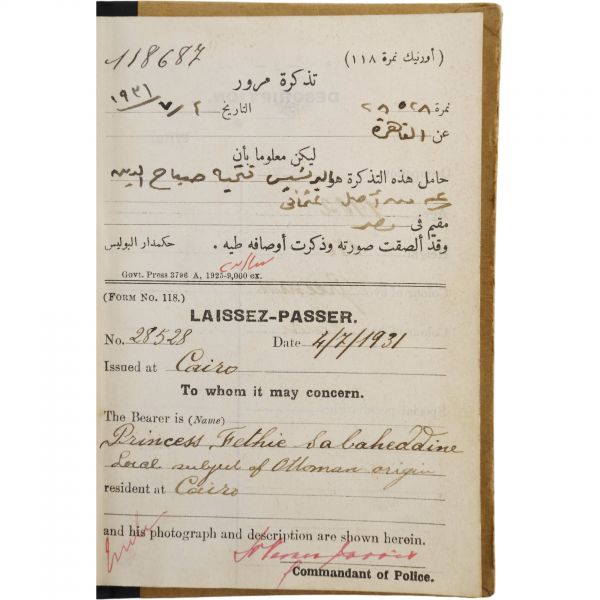 118687
(أورنيك نمرة ١١٨)
تذكرة مرور
نمرة ٢٨٥٢٨ التاريخ ٤/٧/١٩٣١
عن القاهرة
ليكن معلوما بأن
حامل هذه التذكرة هو البرنسيس فتحية صباح الدين
رعية من أصل عثمانى
مقيم فى مصر
وقد ألصقت صورته وذكرت أوصافه طيه . حكمدار البوليس
Govt. Press 3796 A, 1925-9,000 ex.
(Form No. 118.)
LAISSEZ-PASSER.
No. 28528 Date 4/7/1931
Issued at Cairo
To whom it may concern.
The Bearer is (Name)
Princess Fethie Sabaheddine
Local subject of Ottoman origin
resident at Cairo
and his photograph and description are shown herein.
Commandant of Police.